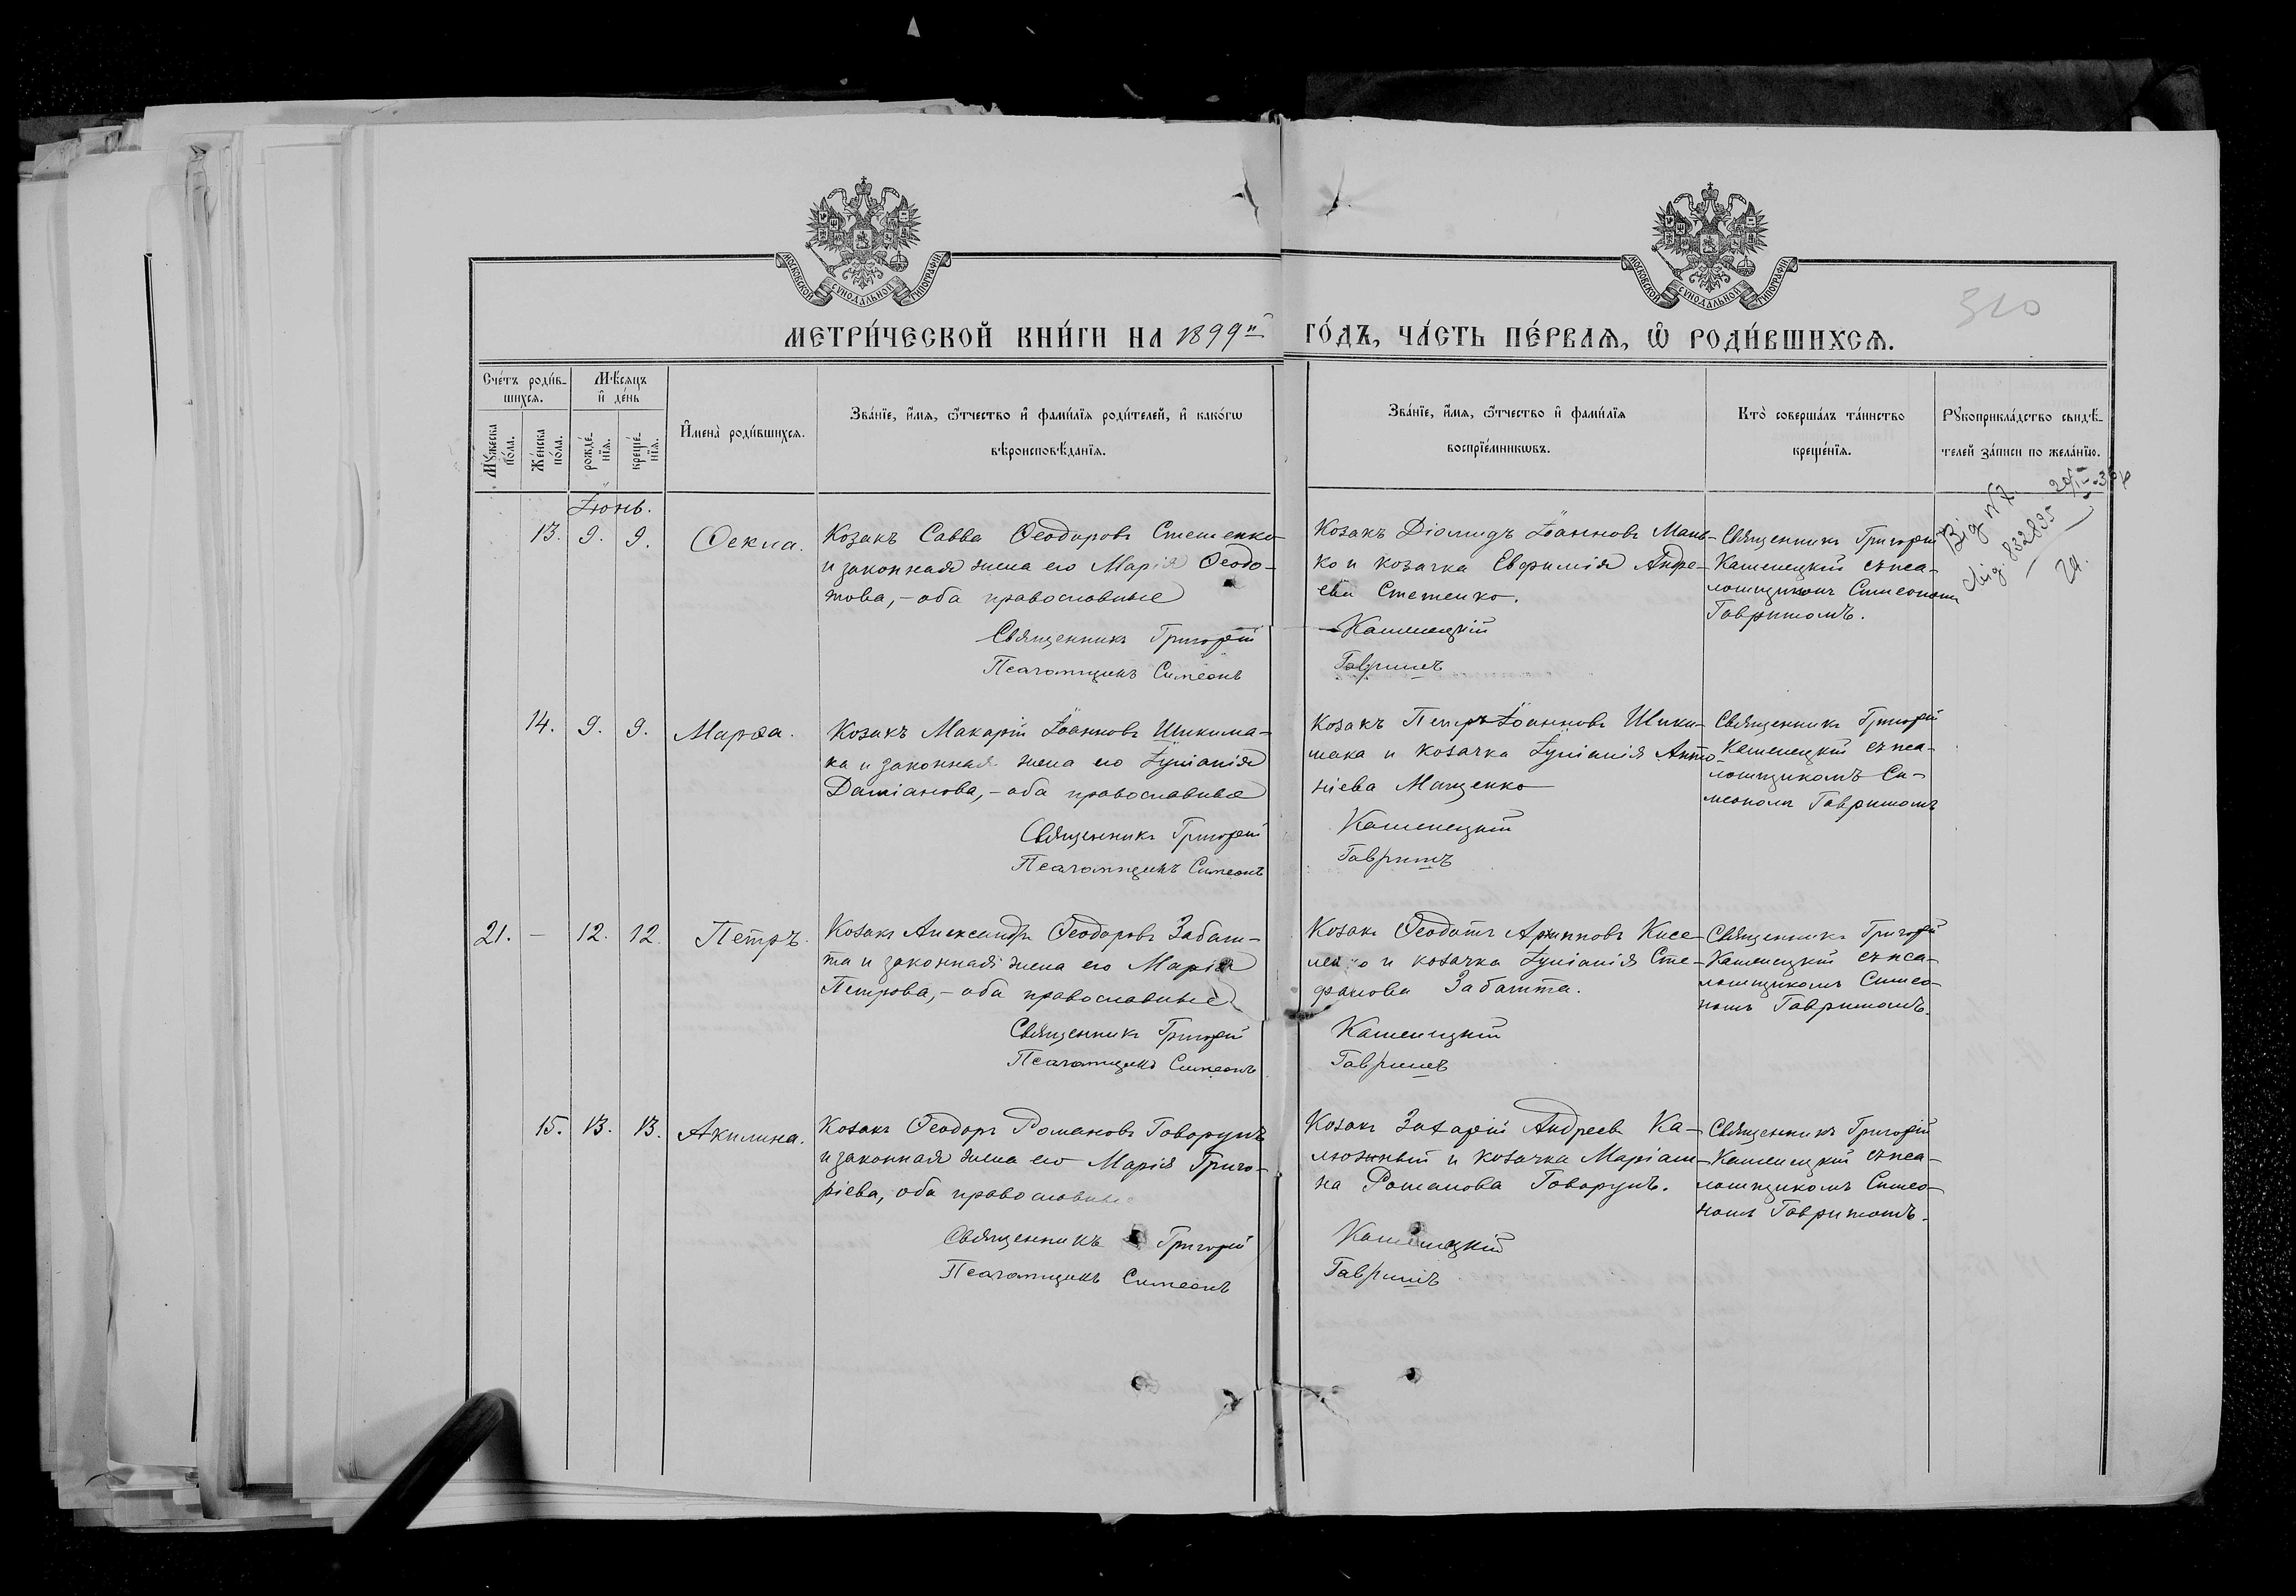 МОСКОВСКОЙ СѴНОДАЛЬНОЙ ТИПОГРАФІИ
МОСКОВСКОЙ СѴНОДАЛЬНОЙ ТИПОГРАФІИ
310
МЕТРИ́ЧЕСКОЙ КНИ́ГИ НА 1899й ГО́ДЪ, ЧА́СТЬ ПЕ́РВАѦ, Ѡ҆ РОДИ́ВШИХСѦ.
Сче́тъ роди́в-
шихсѧ.
Мꙋжеска по́ла.
Же́нска по́ла.
Мѣ́сѧцъ
и҆ де́нь
рожде́-
нїѧ.
креще́-
нїѧ.
И҆мена̀ роди́вшихсѧ.
Зва́нїе, и҆́мѧ, ѻ҆́тчество и҆ фами́лїѧ роди́телей, и҆ како́гѡ
вѣроисповѣ́данїѧ.
Зва́нїе, и҆́мѧ, ѻ҆́тчество и҆ фами́лїѧ
воспрїе́мникѡвъ.
Кто̀ соверша́лъ та́инство
креще́нїѧ.
Рꙋкоприкла́дство свидѣ́-
телей за́писи по жела́нїю.
Іюнь.
13. 9. 9. Ѳекла.
Козакъ Савва Ѳеодоровъ Стеценко
и законная жена его Марія Ѳеодо-
това, - оба православные
Священникъ Григорій
Псаломщикъ Симеонъ
Козакъ Діомидъ Іоанновъ Мань-
ко и козачка Евфимія Андре-
ева Стеценко.
Каменецкій
Гавришъ
Священникъ Григорій
Каменецкій съ пса-
ломщикомъ Симеономъ
Гавришомъ.
Від №7.
832835
24.
14. 9. 9. Марѳа.
Козакъ Макарій Іоанновъ Шикима-
ка и законная жена его Іуліанія
Даміанова, - оба православные
Священникъ Григорій
Псаломщикъ Симеонъ
Козакъ Петръ Іоанновъ Шики-
мака и козачка Іуліанія Анто-
ніева Мащенко
Каменецкій
Гавришъ
Священникъ Григорій
Каменецкій съ пса-
ломщикомъ Си-
меономъ Гавришомъ
21. - 12. 12. Петръ.
Козакъ Александръ Ѳеодоровъ Забаш-
та и законная жена его Марія
Петрова, - оба православные
Священникъ Григорій
Псаломщикъ Симеонъ
Козакъ Ѳеодотъ Архиповъ Кисе-
ленко и козачка Іуліанія Сте-
фанова Забашта.
Каменецкій
Гавришъ
Священникъ Григорій
Каменецкій съ пса-
ломщикомъ Симео-
номъ Гавришомъ.
15. 13. 13. Акилина.
Козакъ Ѳеодоръ Романовъ Говорунъ
и законная жена его Марія Григо-
ріева, оба православные
Священникъ Григорій
Псаломщикъ Симеонъ
Козакъ Захарій Андреевъ Ка-
люжный и козачка Маріам-
на Романова Говорунъ.
Каменецкій
Гавришъ
Священникъ Григорій
Каменецкій съ пса-
ломщикомъ Симео-
номъ Гавришомъ.